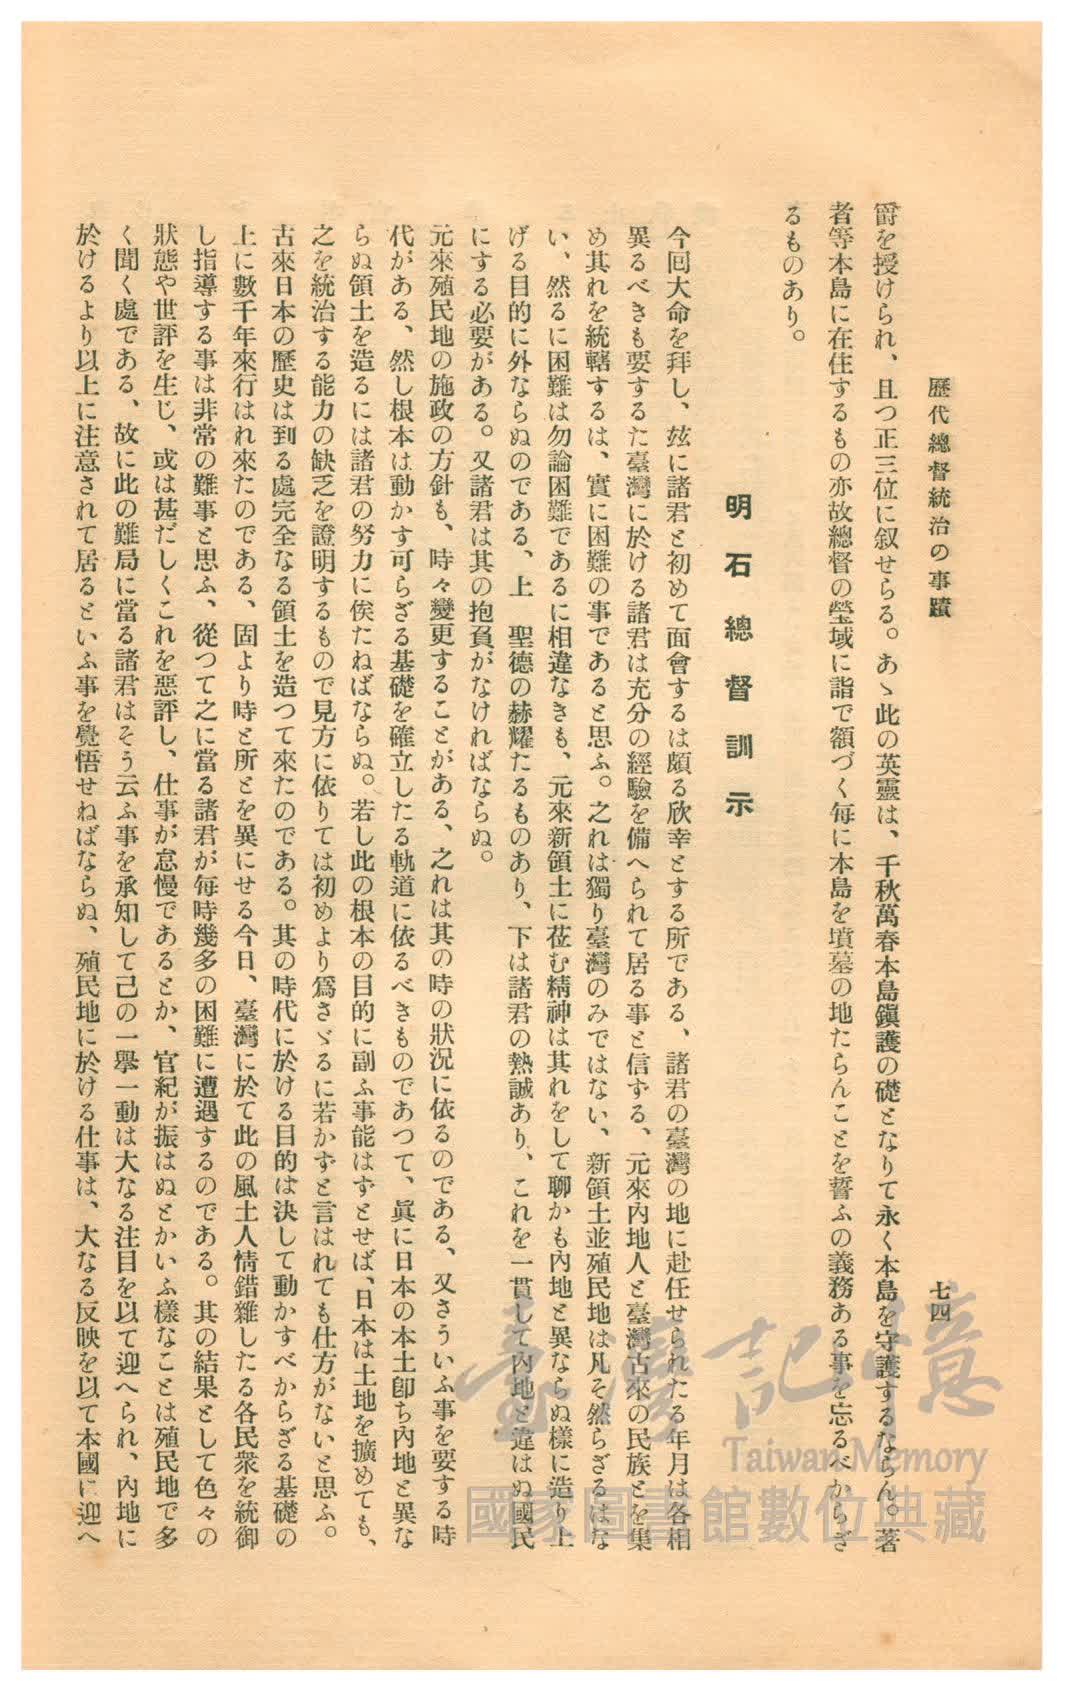 歷代總督統治の事蹟
七四
爵を授けられ、且つ正三位に叙せらる。あゝ此の英靈は、千秋萬春本島鎭護の礎となりて永く本島を守護するならん。著
者等本島に在住するもの亦故總督の塋域に詣で額づく毎に本島を墳墓の地たらんことを誓ふの義務ある事を忘るべからざ
るものあり。
明石總督訓示
今回大命を拜し、玆に諸君と初めて面會するは頗る欣幸とする所である、諸君の臺灣の地に赴任せられたる年月は各相
異るべきも要するた臺灣に於ける諸君は充分の經驗を備へられて居る事と信ずる、元來內地人と臺灣古來の民族とを集
め其れを統轄するは、實に困難の事であると思ふ。之れは獨り臺灣のみではない、新領土並殖民地は凡そ然らざるはな
い、然るに困難は勿論困難であるに相違なきも、元來新領土に莅む精神は其れをして聊かも內地と異ならぬ樣に造り上
げる目的に外ならぬのである、上　聖德の赫耀たるものあり、下は諸君の熱誠あり、これを一貫して內地と違はぬ國民
にする必要がある。又諸君は其の抱負がなければならぬ。
元來殖民地の施政の方針も、時々變更することがある、之れは其の時の狀況に依るのである、又さういふ事を要する時
代がある、然し根本は動かす可らざる基礎を確立したる軌道に依るべきものであつて、眞に日本の本土卽ち內地と異な
らぬ領土を造るには諸君の努力に俟たねばならぬ。若し此の根本の目的に副ふ事能はずとせば、日本は土地を擴めても、
之を統治する能力の缺乏を證明するもので見方に依りては初めより爲さゞるに若かずと言はれても仕方がないと思ふ。
古來日本の歷史は到る處完全なる領土を造つて來たのである。其の時代に於ける目的は決して動かすべからざる基礎の
上に數千年來行はれ來たのである、固より時と所とを異にせる今日、臺灣に於て此の風土人情錯雜したる各民衆を統御
し指導する事は非常の難事と思ふ、從つて之に當る諸君が每時幾多の困難に遭遇するのである。其の結果として色々の
狀態や世評を生じ、或は甚だしくこれを惡評し、仕事が怠慢であるとか、官紀が振はぬとかいふ樣なことは殖民地で多
く聞く處である、故に此の難局に當る諸君はそう云ふ事を承知して己の一擧一動は大なる注目を以て迎へられ、內地に
於けるより以上に注意されて居るといふ事を覺悟せねばならぬ、殖民地に於ける仕事は、大なる反映を以て本國に迎へ
臺灣記憶
Taiwan Memory
國家圖書館數位典藏